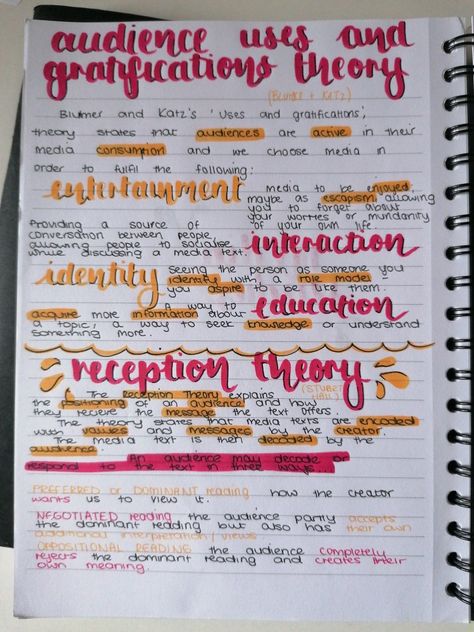 audience uses and
gratifications theory
(BLUMER + KATZ)
Blumer and Katz's 'Uses and gratifications',
theory states that audiences are active in their
media consumption and we choose media in
order to fulfil the following:
entertainment
media to be enjoyed,
maybe as escapism, allowing
you to forget about
your worries or mundanity
of your own life.
Providing a source of
conversation between people,
allowing people to socialise
while discussing a media text.
interaction
identity
Seeing the person as someone you
identify with, a role model -
you aspire to be like them.
A way to
acquire more information about
a topic, a way to seek knowledge or understand
something more.
education
reception theory
(STUART
HALL)
The Reception Theory explains
the positioning of an audience and how
they recieve the message the text offers.
The theory states that media texts are encoded
with values and messages by the creator.
The media text is then decoded by the
audience.
An audience may decode or
respond to the text in three ways...
PREFERRED or DOMINANT reading how the creator
wants us to view it.
NEGOTIATED reading the audience partly accepts
the dominant reading but also has their own
additional interpretation/views
OPPOSITIONAL READING the audience completely
rejects the dominant reading and creates their
own meaning.